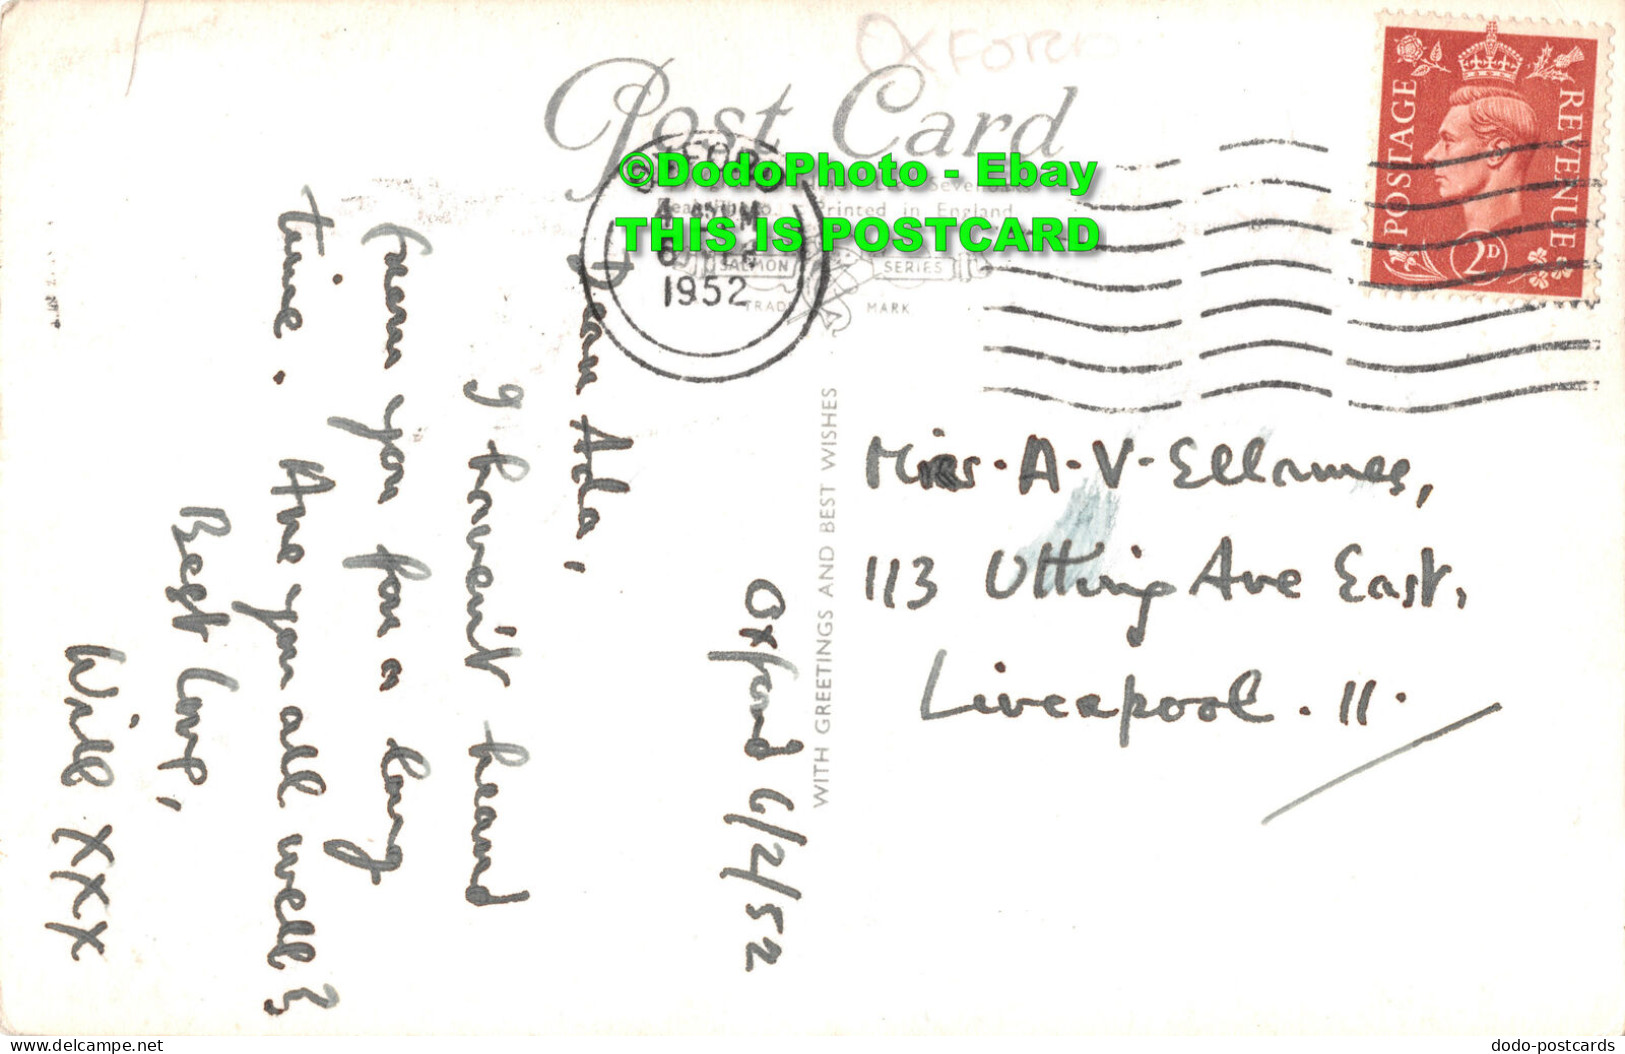 Oxford
Post Card
©DodoPhoto - Ebay
THIS IS POSTCARD
Printed in England
SALMON SERIES
TRADE MARK
4 45PM
1952
POSTAGE REVENUE
2D
WITH GREETINGS AND BEST WISHES
Oxford 6/2/52
Dear Ada,
I haven't heard
from you for a long
time. Are you all well?
Best Love,
Will XXX
Miss. A. V. Ellames,
113 Utting Ave East,
Liverpool. 11.
dodo-postcards.delcampe.net
dodo-postcards